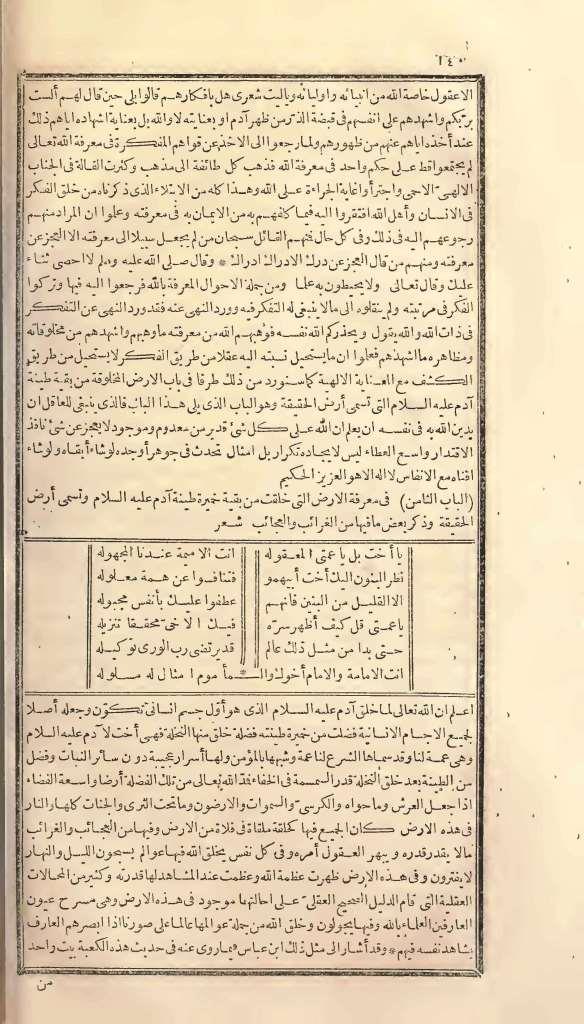 ١٤٠
الاعقول خاصة الله من انبيائه وأوليائه وياليت شعرى هل بافكارهم قالوا بلى حين قال لهم ألست
بربكم وأشهدهم على أنفسهم فى قبضة الذر من ظهر آدم أو بعنايته لا والله بل بعناية اشهاده اياهم ذلك
عند أخذه اياهم عنهم من ظهورهم ولما رجعوا الى الاخذ عن قواهم المفكرة فى معرفة الله تعالى
لم يجتمعوا قط على حكم واحد فى معرفة الله فذهب كل طائفة الى مذهب وكثرت القالة فى الجناب
الالهى الاحمى واجترأ وأغاية الجراءة على الله وهذا كله من الابتلاء الذى ذكرناه من خلق الفكر
فى الانسان وأهل الله افتقروا اليه فيما كلفهم به من الايمان به فى معرفته وعلموا ان المراد منهم
رجوعهم اليه فى ذلك وفى كل حال فمنهم القائل سبحان من لم يجعل سبيلا الى معرفته الا العجز عن
معرفته ومنهم من قال العجز عن درك الادراك ادراك * وقال صلى الله عليه وسلم لا احصى ثناء
عليك وقال تعالى ولا يحيطون به علما ومن جملة الاحوال المعرفة بالله فرجعوا اليه فيها وتركوا
الفكر فى مرتبته ولم ينقلوه الى مالا ينبغى له التفكر فيه وورد النهى عنه فقد ورد النهى عن التفكر
فى ذات الله والله يقول ويحذركم الله نفسه فوهبهم الله من معرفته ماوهبهم وأشهدهم من مخلوقاته
ومظاهره ما أشهدهم فعلموا ان ما يستحيل نسبته اليه عقلا من طريق الفكر لا يستحيل من طريق
الكشف مع العناية الالهية كما سنورد من ذلك طرفا فى باب الارض المخلوقة من بقية طينة
آدم عليه السلام التى تسمى أرض الحقيقة وهو الباب الذى يلى هذا الباب فالذى ينبغى للعاقل ان
يدين الله به فى نفسه ان يعلم ان الله على كل شئ قدير من معدوم وموجود لا يعجز عن شئ نافذ
الاقتدار واسع العطاء ليس لايجاده تكرار بل امثال تحدث فى جوهر أوجده لو شاء أبقاه ولو شاء
افناه مع الانفاس لا اله الا هو العزيز الحكيم
(الباب الثامن) فى معرفة الارض التى خلقت من بقية خميرة طينة آدم عليه السلام وتسمى أرض
الحقيقة وذكر بعض مافيها من الغرائب والعجائب شعر
يا أخت بل يا عمتى المعقوله انت الاميمة عندنا المجهوله
نظر البنون اليك أخت أبيهمو فتنافوا عن همة معلوله
الا القليل من البنين فانهم عطفوا عليك بأنفس مجبوله
يا عمتى قل كيف أظهر سره فيك الاخى محققا تنزيله
حتى بدا من مثل ذلك عالم قد يرتضى رب الورى توكيله
انت الامامة والامام أخوك والـ ـمأموم امثال له مسلوله
اعلم ان الله تعالى لما خلق آدم عليه السلام الذى هو أول جسم انسانى تكون وجعله أصلا
لجميع الاجسام الانسانية فضلت من خميرة طينته فضلة خلق منها النخلة فهى أخت لآدم عليه السلام
وهى عمة لنا وقد سماها الشرع لنا عمة وشبهها بالمؤمن ولها أسرار عجيبة دون سائر النبات وفضل
من الطينة بعد خلق النخلة قدر السمسمة فى الخفاء فمد الله تعالى من تلك الفضلة أرضا واسعة الفضاء
اذا جعل العرش وما حواه والكرسى والسموات والارضون وما تحت الثرى والجنات كلها والنار
فى هذه الارض كان الجميع فيها كحلقة ملقاة فى فلاة من الارض وفيها من العجائب والغرائب
مالا يقدر قدره ويبهر العقول أمره وفى كل نفس يخلق الله فيها عوالم يسبحون الليل والنهار
لا يفترون وفى هذه الارض ظهرت عظمة الله وعظمت عند المشاهد لها قدرته وكثير من المحالات
العقلية التى قام الدليل الصحيح العقلى على احالتها موجود فى هذه الارض وهى مسرح عيون
العارفين العلماء بالله وفيها يجولون وخلق الله من جملة عوالمها عالما على صورنا اذا ابصرهم العارف
يشاهد نفسه فيهم * وقد أشار الى مثل ذلك ابن عباس فيما روى عنه فى حديث هذه الكعبة بيت واحد
من